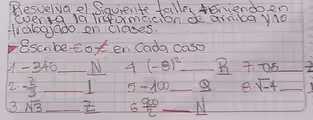 Resuelva el Siguiente taller teniendo en
cuenta la información de arriba y lo
trabajado en clases.
Escribe ∈ o ∉ en cada caso
1 -346 ___ N 4 (-8)² ___ R 7. -0.5 ___ Z
2. -2/3 ___ I 5 -100 ___ Q 8. √-4 ___ I
3 √3 ___ Z 6 900/2 ___ N